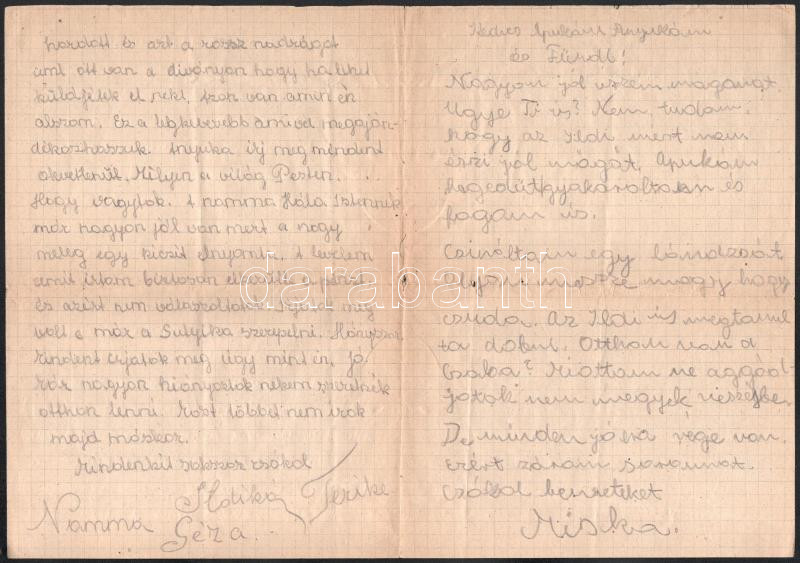 hordott és azt a rossz nadrágot
ami ott van a diványon hogy ha lehet
küldjétek el neki, azon van amin én
alszom. Ez a legkevesebb amivel megaján-
dékozhassuk. Anyuka irj meg mindent
okvetlenül. Milyen a világ Pesten.
Hogy vagytok. A namma Hála Istennek
már nagyon jól van mert a nagy
meleg egy kicsit A levelem
amit irtam biztosan
és azért nem válaszoltatok. még
volt e már a Sutyika szerepelni.
mindent irjatok meg úgy mint én. Jo
már nagyon hiányoztok nekem szeretnék
otthon lenni. Most többet nem irok
majd máskor.
Mindenkit sokszor csókol
Ildikó Terike
Namma Géza.
Kedves Apukám Anyukám
és Fündl!
Nagyon jól érzem magamat.
Ugye Ti is? Nem tudom,
hogy az Ildi mert nem
érzi jól magát. Apukám
hegedűt gyakoroltam és
fogam is.
Csináltam egy lándzsát
olyan messze megy hogy
csuda. Az Ildi is megtanult
dobni. Otthon van a
Csaba? Miattam ne aggód-
jatok nem megyek veszélybe.
De minden jóra vége van.
Ezért zárom soraimat.
Csókol benneteket
Miska.
darabanth